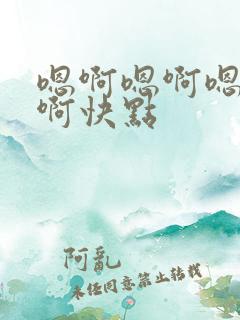 嗯啊嗯啊嗯
啊快點
阿亂
未经同意禁止转载